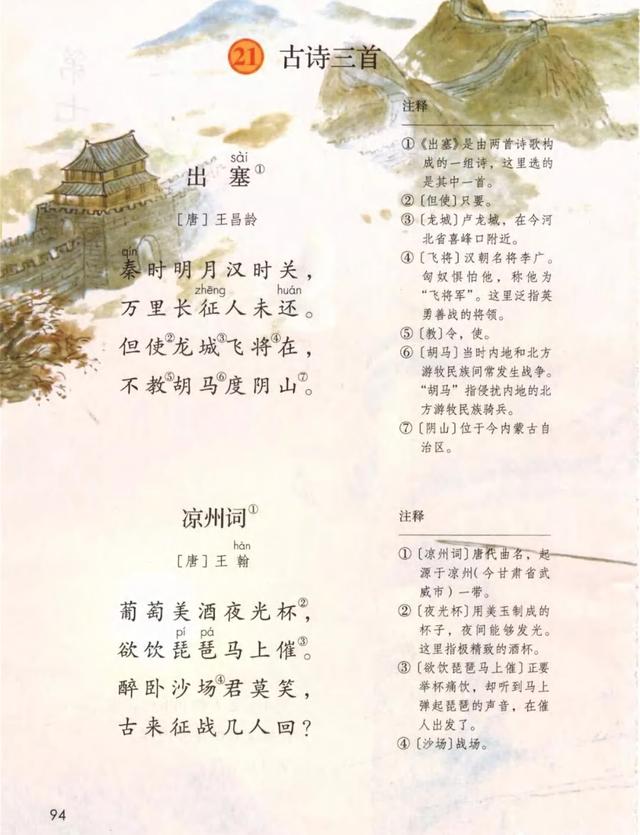 21 古诗三首
sài
出 塞①
[唐] 王昌龄
qín
秦时明月汉时关，
zhēng huán
万里长征人未还。
但使②龙城③飞将④在，
不教⑤胡马⑥度阴山⑦。
注释
①《出塞》是由两首诗歌构
成的一组诗，这里选的
是其中一首。
②〔但使〕只要。
③〔龙城〕卢龙城，在今河
北省喜峰口附近。
④〔飞将〕汉朝名将李广。
匈奴惧怕他，称他为
“飞将军”。这里泛指英
勇善战的将领。
⑤〔教〕令，使。
⑥〔胡马〕当时内地和北方
游牧民族间常发生战争。
“胡马”指侵扰内地的北
方游牧民族骑兵。
⑦〔阴山〕位于今内蒙古自
治区。
凉州词①
hàn
[唐] 王 翰
葡萄美酒夜光杯②，
pí pá
欲饮琵琶马上催③。
醉卧沙场④君莫笑，
古来征战几人回？
注释
①〔凉州词〕唐代曲名，起
源于凉州（今甘肃省武
威市）一带。
②〔夜光杯〕用美玉制成的
杯子，夜间能够发光。
这里指极精致的酒杯。
③〔欲饮琵琶马上催〕正要
举杯痛饮，却听到马上
弹起琵琶的声音，在催
人出发了。
④〔沙场〕战场。
94
第七